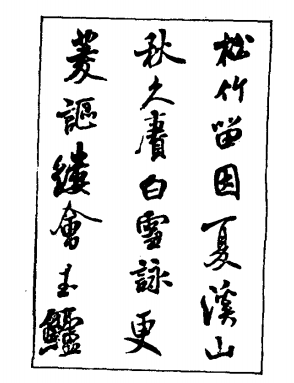 松竹留因夏溪山
秋久賡白雪詠更
菱謳縷會玉鱸